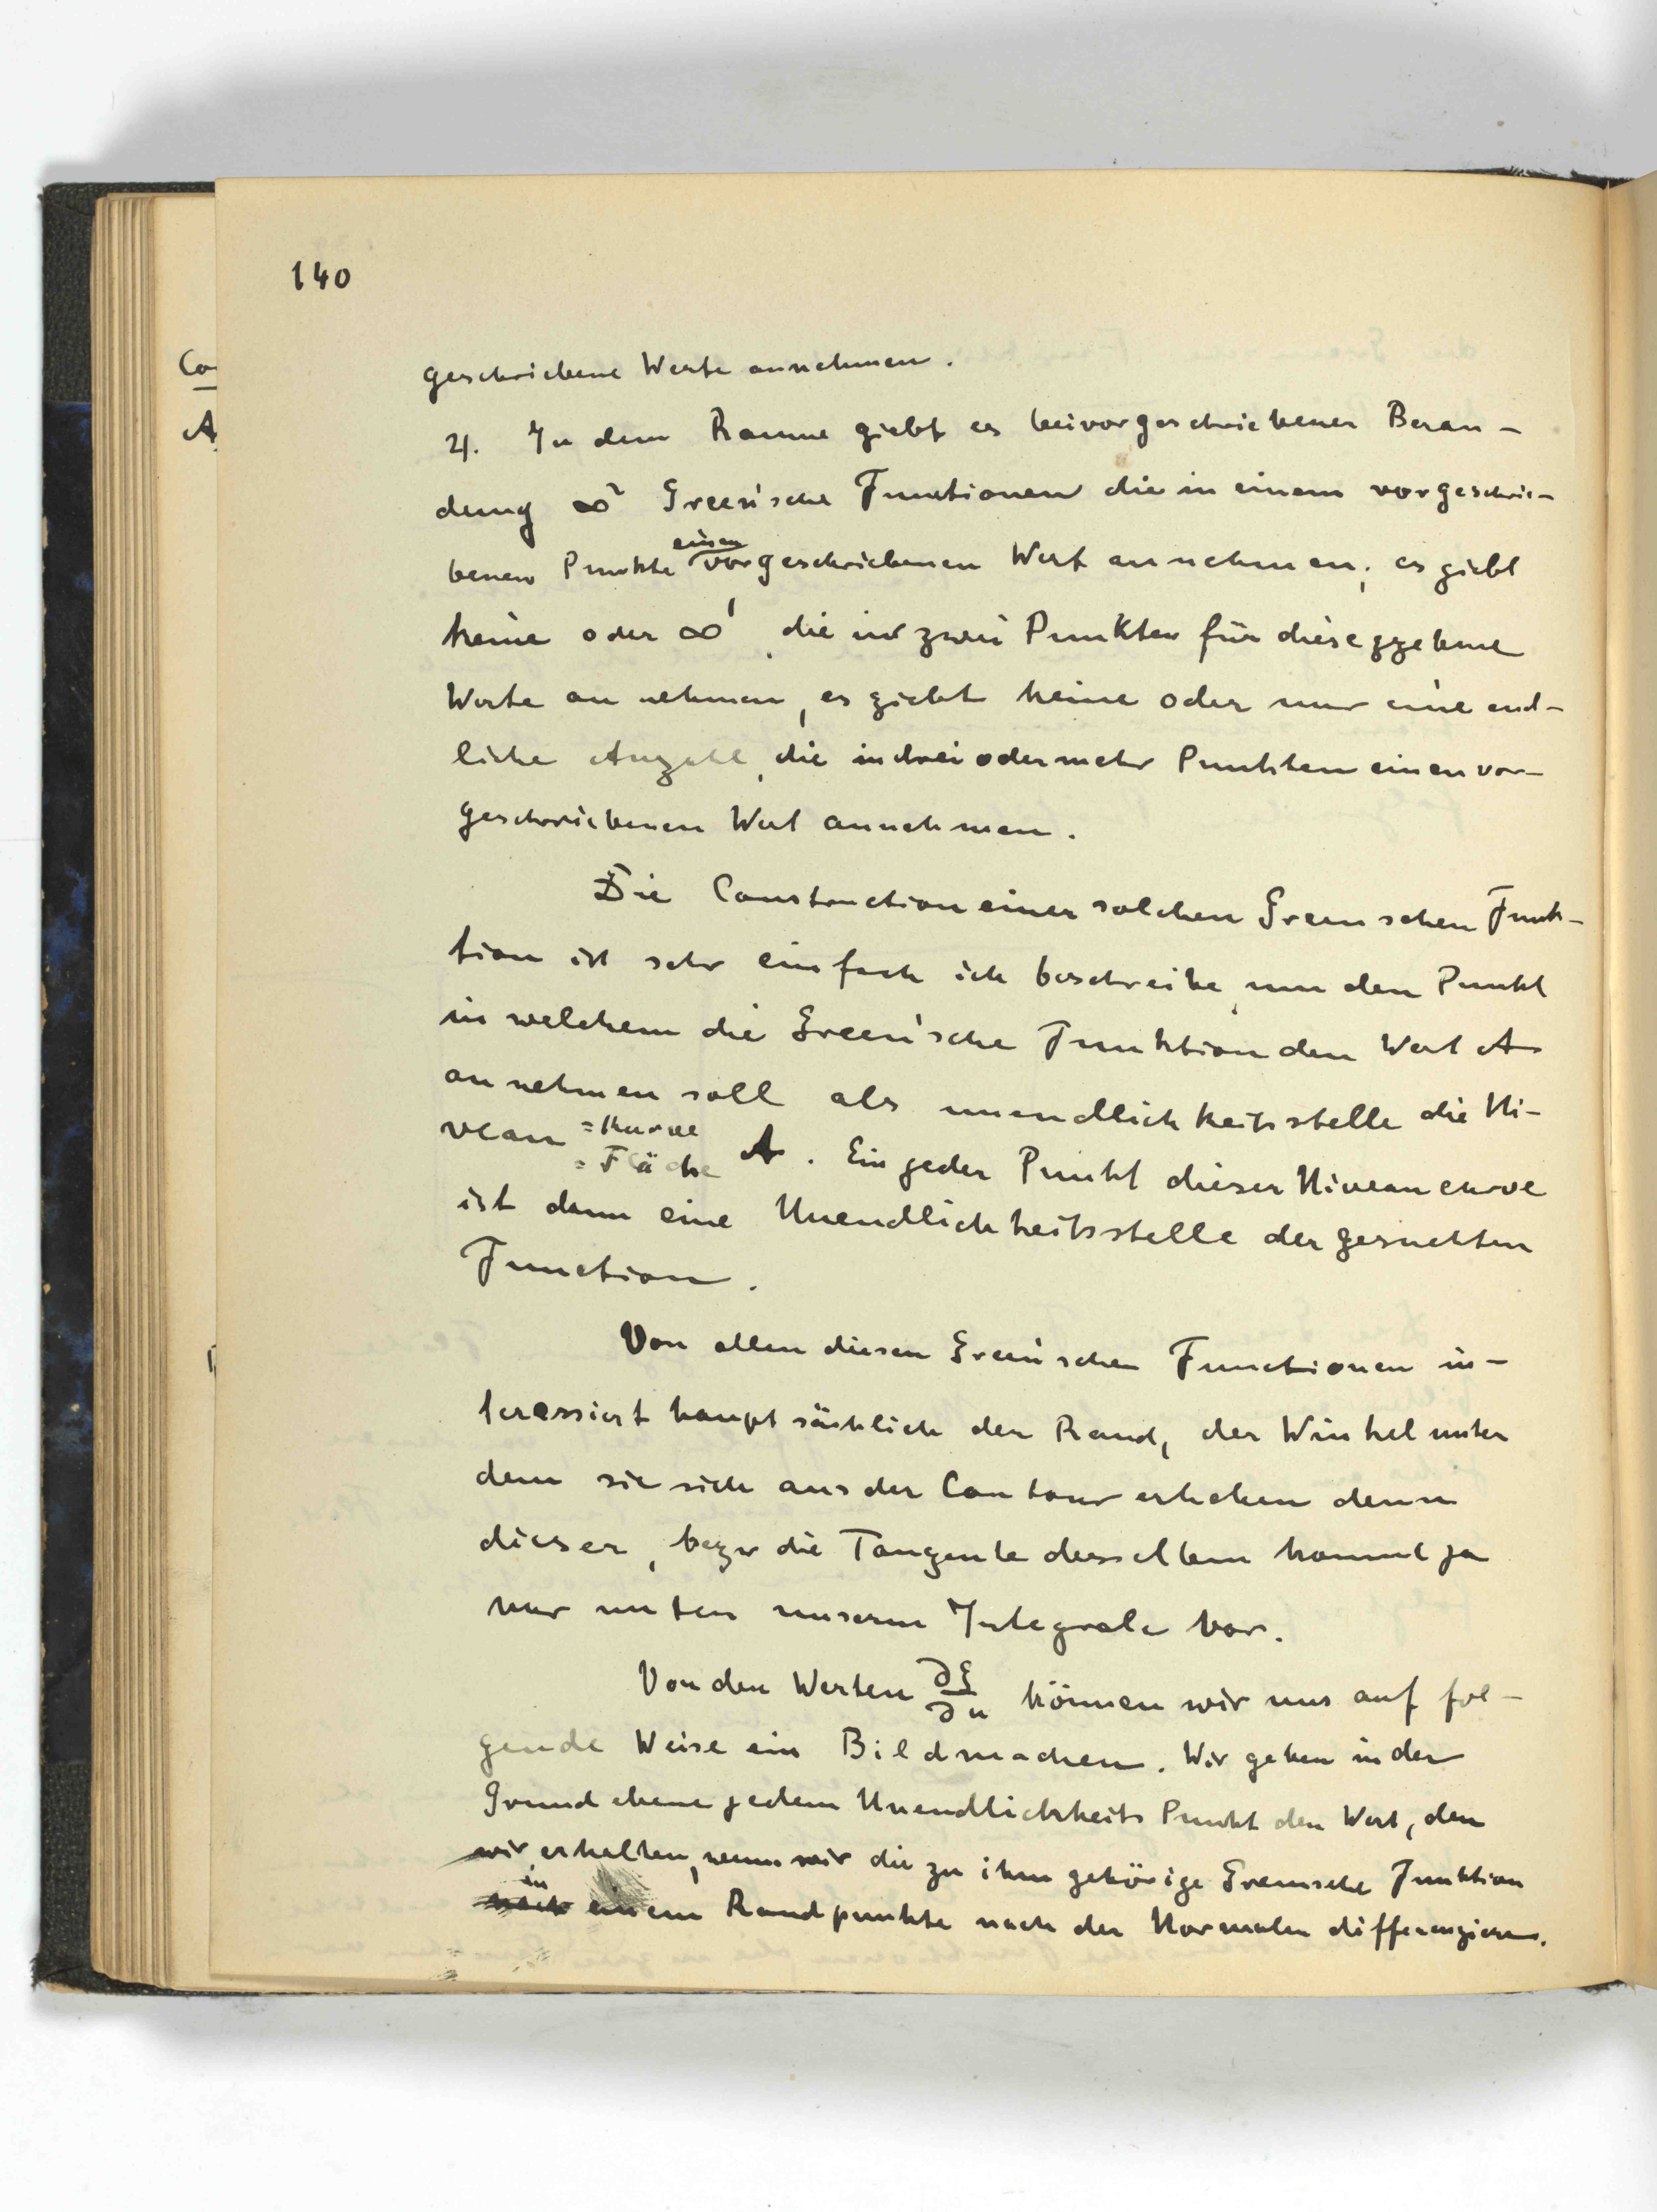 140
Co
A
geschriebene Werte annehmen.
4. In dem Raume giebt es bei vorgeschriebener Beran-
dung ∞² Green'sche Functionen die in einem vorgeschrie-
benen Punkte einen vorgeschriebenen Wert annehmen; es giebt
keine oder ∞¹, die in zwei Punkten für diese ggebene
Werte annehmen, es giebt keine oder nur eine end-
liche Anzahl, die in drei oder mehr Punkten einen vor-
geschriebenen Wert annehmen.
Die Construction einer solchen Greenschen Funk-
tion ist sehr einfach ich beschreibe, um den Punkt
in welchem die Green'sche Funktion den Wert A
annehmen soll als unendlichkeitsstelle die Ni-
veau =Kurve
=Fläche A. Ein jeder Punkt dieser Niveaucurve
ist dann eine Unendlichkeitsstelle der gesuchten
Function.
Von allen diesen Green'schen Functionen in-
teressiert hauptsächlich der Rand, der Winkel unter
dem sie sich aus der Contour erheben denn
dieser, bezw die Tangente desselben kommt ja
nur unter unserm Integrale vor.
Von den Werten ∂G/∂n können wir uns auf fol-
gende Weise ein Bild machen. Wir geben in der
Grundebene jedem Unendlichkeits Punkt den Wert, den
wir erhalten, wenn wir die zu ihm gehörige Greensche Funktion
nach in einem Randpunkte nach der Normalen differenzieren.